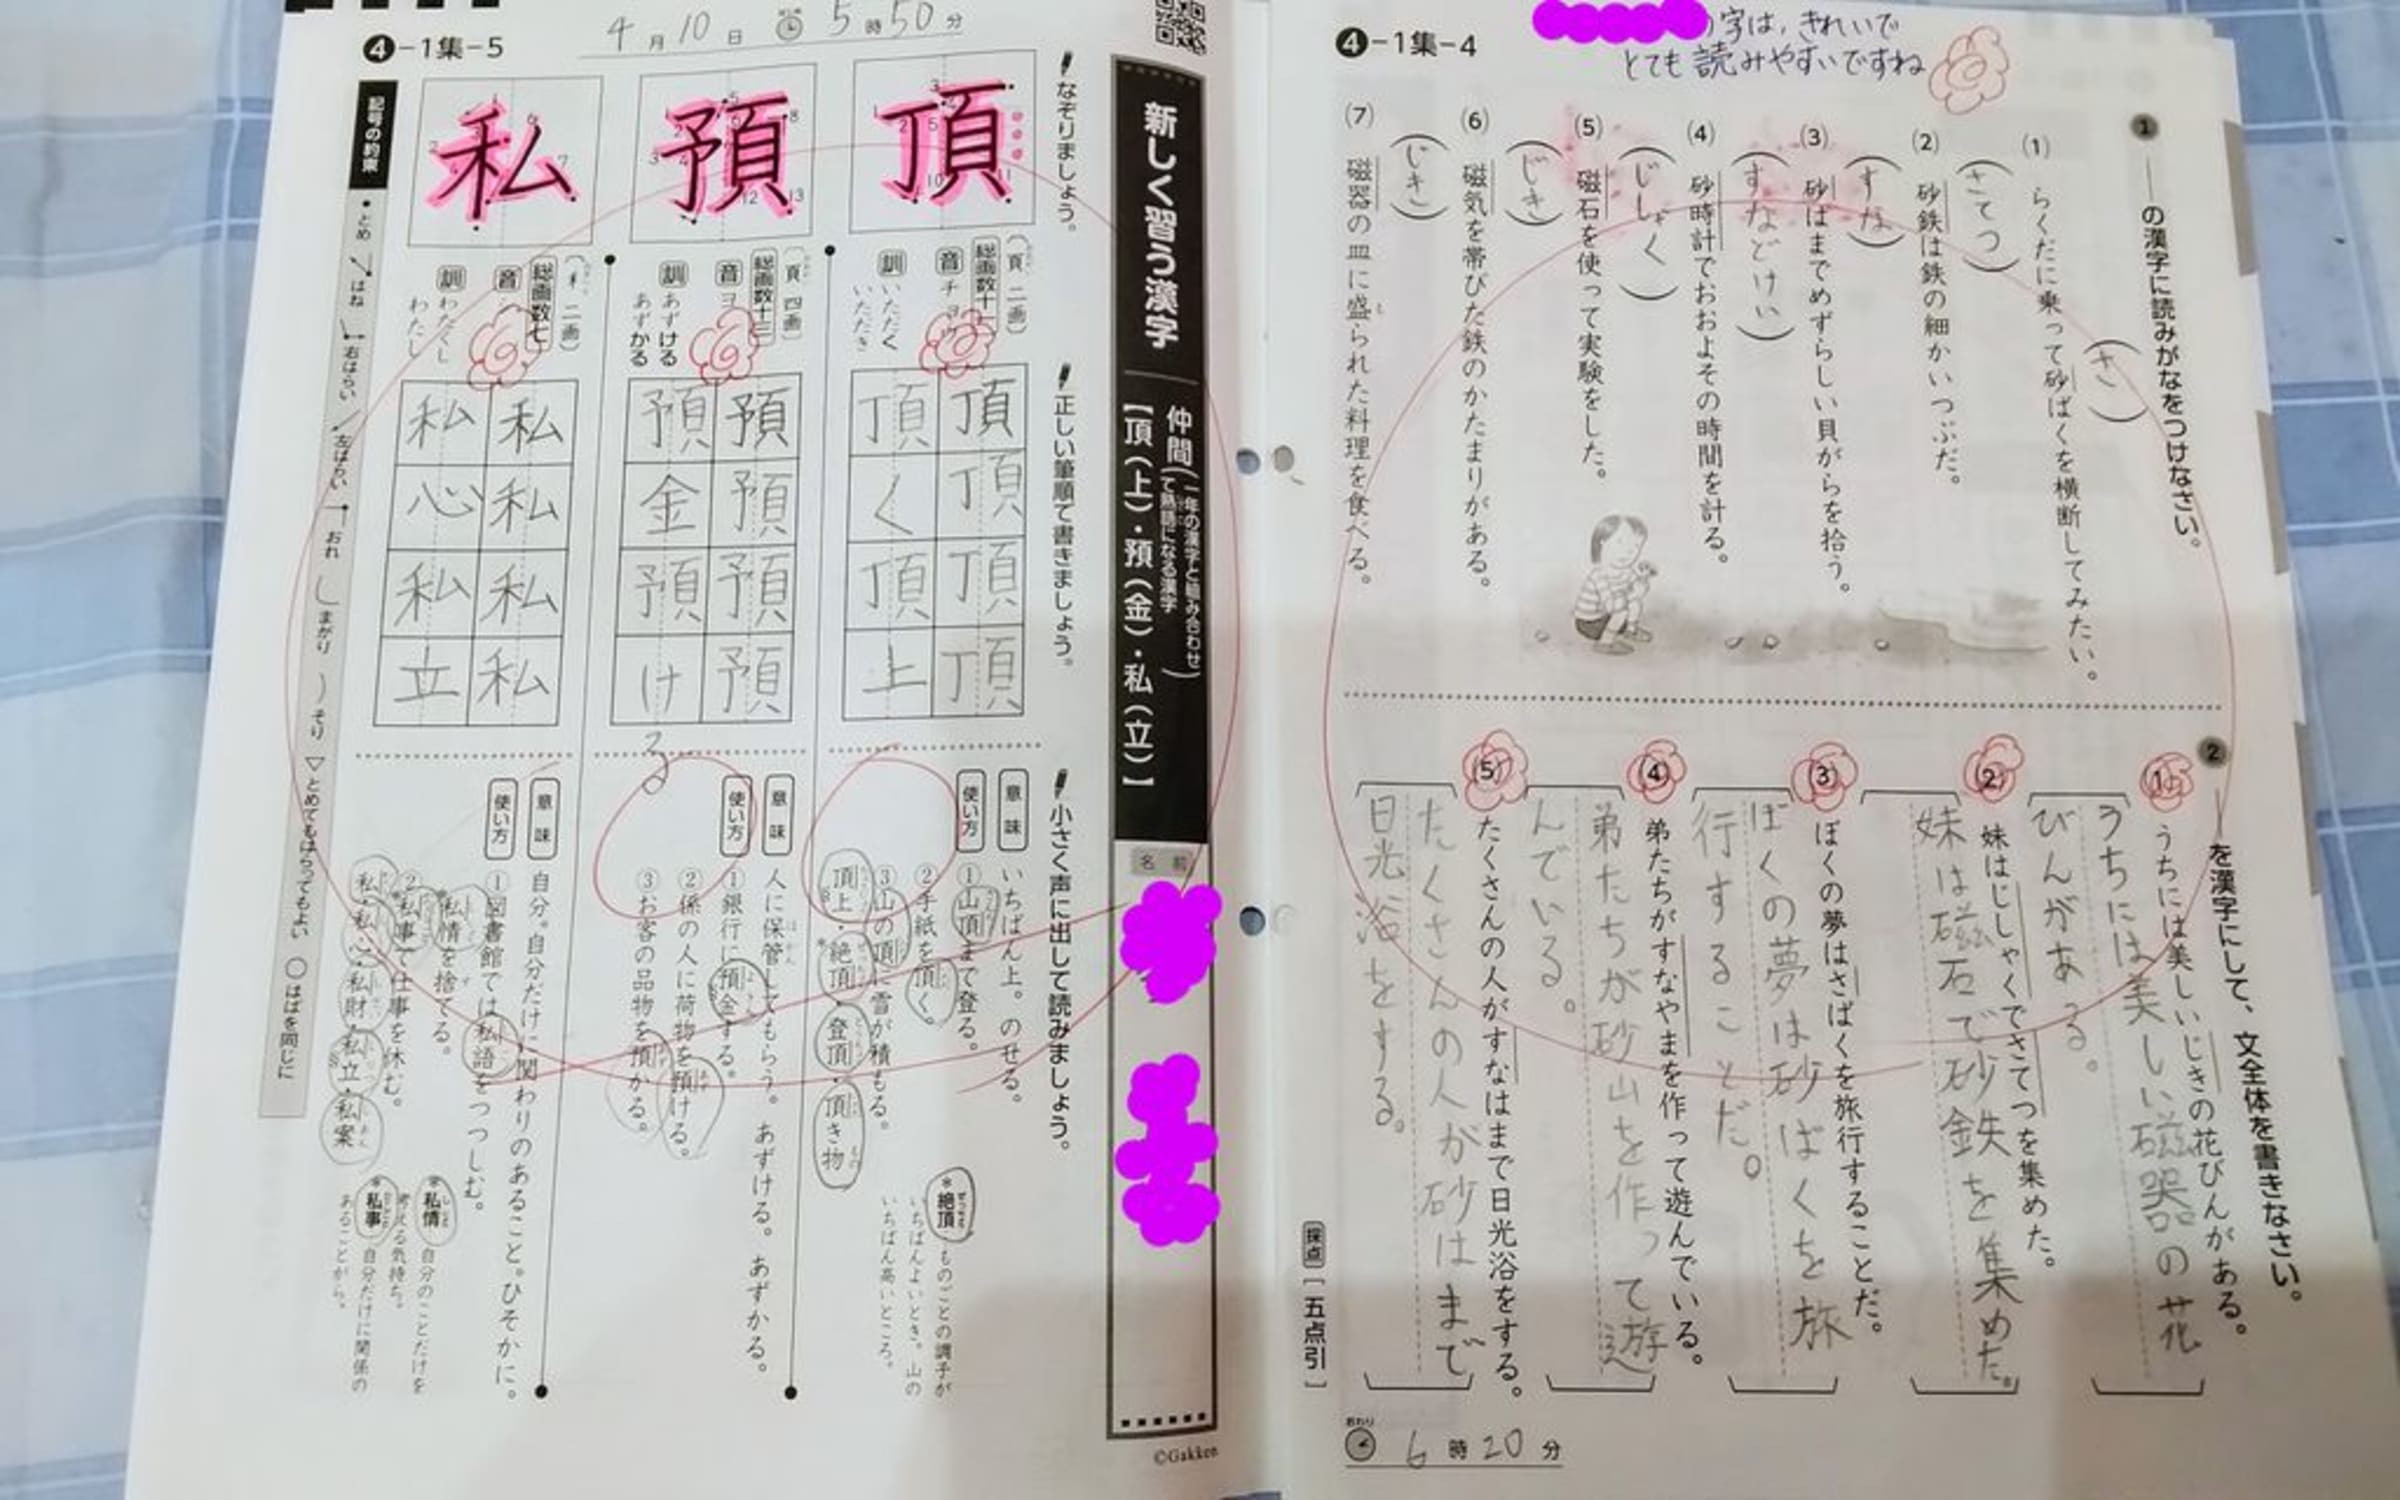 ④-1集-4
の字は、きれいで
とても読みやすいですね
❶ ——の漢字に読みがなをつけなさい。
(1) らくだに乗って砂ばくを横断してみたい。
(さ)
(2) 砂鉄は鉄の細かいつぶだ。
(さてつ)
(3) 砂はまでめずらしい貝がらを拾う。
(すな)
(4) 砂時計でおおよその時間を計る。
(すなどけい)
(5) 磁石を使って実験をした。
(じしゃく)
(6) 磁気を帯びた鉄のかたまりがある。
(じき)
(7) 磁器の皿に盛られた料理を食べる。
(じき)
❷ ——を漢字にして、文全体を書きなさい。
(1) うちには美しいじきの花びんがある。
うちには美しい磁器の花
びんがある。
(2) 妹はじしゃくでさてつを集めた。
妹は磁石で砂鉄を集めた。
(3) ぼくの夢はさばくを旅行することだ。
ぼくの夢は砂ばくを旅
行することだ。
(4) 弟たちがすなやまを作って遊んでいる。
弟たちが砂山を作って遊
んでいる。
(5) たくさんの人がすなはまで日光浴をする。
たくさんの人が砂はまで
日光浴をする。
採点 [五点引]
おわり 6時20分
④-1集-5
4月10日 5時50分
新しく習う漢字
仲間(一年の漢字と組み合わせて熟語になる漢字)
【頂(上)・預(金)・私(立)】
名前
©Gakken
なぞりましょう。
正しい筆順で書きましょう。
小さく声に出して読みましょう。
頂
(頁 二画)
総画数十一
音 チョウ
訓 いただく
いただき
頂頂頂頂
頂く頂上
意味 いちばん上。のせる。
使い方 ①山頂まで登る。
②手紙を頂く。
③山の頂に雪が積もる。
頂上・*絶頂・登頂・頂き物
*絶頂 ものごとの調子が
いちばんよいとき。山の
いちばん高いところ。
預
(頁 四画)
総画数十三
音 ヨ
訓 あずける
あずかる
預預預預
預金預ける
意味 人に保管してもらう。あずける。あずかる。
使い方 ①銀行に預金する。
②係の人に荷物を預ける。
③お客の品物を預かる。
私
二画)
総画数七
音
訓 わたくし
わたし
私私私私
私心私立
意味 自分。自分だけに関わりのあること。ひそかに。
使い方 ①図書館では私語をつつしむ。
*私情を捨てる。
②*私事で仕事を休む。
私・私心・私財・私立・私案
*私情 自分のことだけを
考える気持ち。
*私事 自分だけに関係の
あることがら。
記号の約束 ・とめ はね 右はらい 左はらい おれ まがり そり ▽とめてもはらってもよい ○はばを同じに